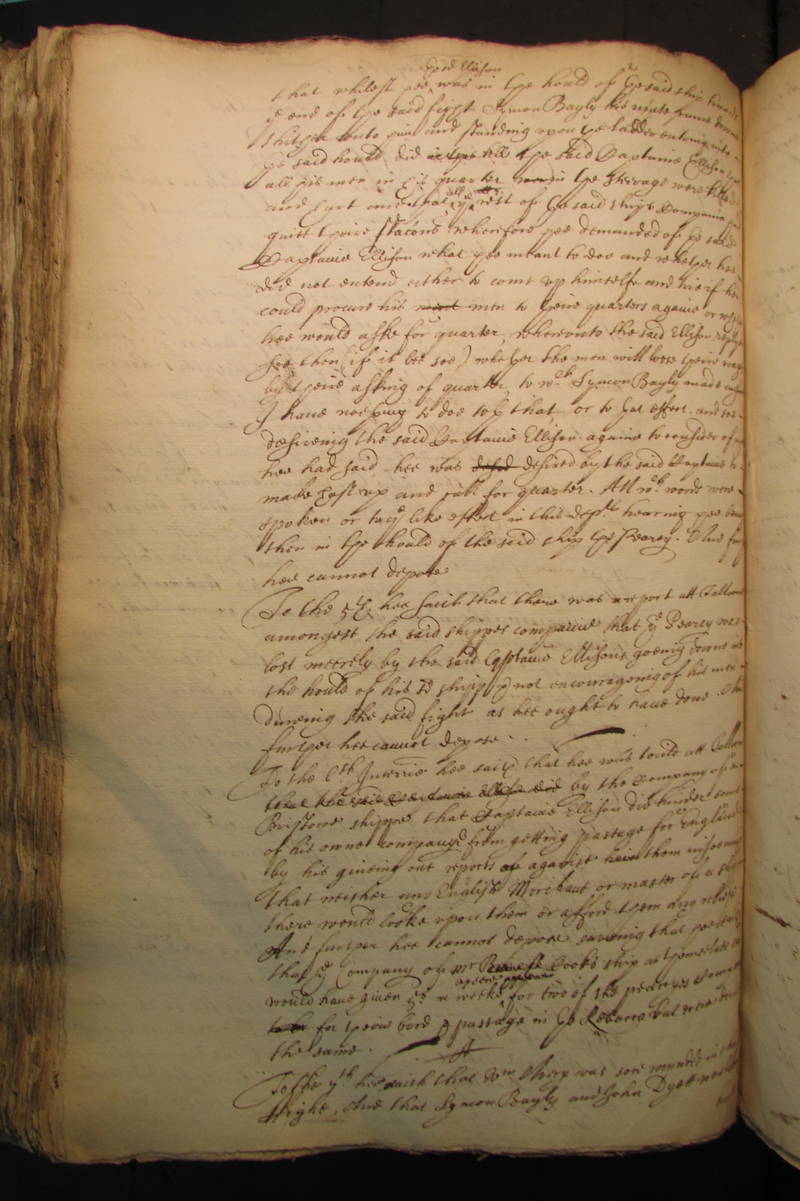 Geo: Ellison
that whilest hee was in the hould of the said ship towards
the end of the said fight Symon Bayly his mate came downe
thither unto him and standing upon the ladder entring into
the said hould did tell the said Captaine Ellison that
all his men in his quarter in the steerage were killed
and hurt and that all the rest of the said ships Companie had
quitt theire stacons wherefore hee demanded of the said
Captaine Ellison what hee meant to doe and whether hee
did not entend either to come up himselfe and trie if hee
could procure his men to theire quarters againe or whether
hee would aske for quarter, whereunto the said Ellison replyed
then (if it bee soe) whether the men will loose theire
by theire asking of quarter, to wch Symon Bayly made
I have nothing to doe with that or to that effect and
desireing the said Captaine Ellison againe to consider of
hee had said hee was desired by the said Captaine to
make hast up and call for quarter. All wch words were
spoken or the like effect in this depts hearing hee being
then in the hould of the said ship the Pearcy. And further
hee cannot depose
To the 5th hee saith that there was a report att Callowe
amongest the said shippes companie that the Pearcy was
lost meerely by the said Captaine Ellisons goeing downe into
the hould of his ship & not encourageing of his men
dureing the said fight as hee ought to have done And
further hee cannot depose.
To the 6th Interrie hee saith that hee was tould att Callowe
that the said Captaine Ellison did by the Company of a
Bristowe shippe that Captaine Ellison did hinder some
of his owne company from getting passage for England
by his giveing out reports against them
that neither any English Merchant or master of a ship
there would looke upon them or afford them any reliefe
And further hee cannot depose saveing that hee saith
that the Company of Mr Cooks ship
would have given a weekes for two of the pearcyes Company
for theire bord & passage in the Rebecca but were denied
the same.
To the 7th hee saith that Wm Sharp was sore wounded in the
thighe, And that Symon Bayly and John Dyett